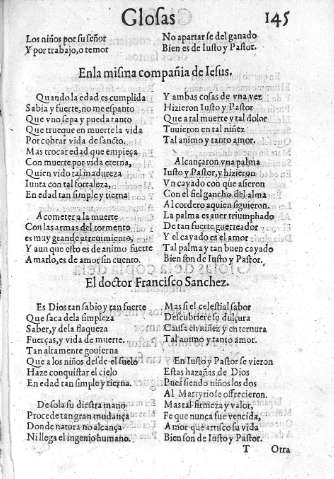 Glosas 145
Los niños por su señor
Y por trabajo, o temor
No apartar se del ganado
Bien es de Iusto y Pastor.
En la misma compañia de Iesus.
Quando la edad es cumplida
Sabia y fuerte, no me espanto
Que vno sepa y pueda tanto
Que trueque en muerte la vida
Por cobrar vida de sancto.
Mas trocar edad que empieça
Con muerte por vida eterna,
Quien vido tal madureza
Iunta con tal fortaleza,
En edad tan simple y tierna.
Acometer a la muerte
Con las armas del tormento
es muy grande atreuimiento,
Y aun que esto es de animo fuerte
A marlo, es de amor sin cuento.
Y ambas cosas de vna vez
Hizieron Iusto y Pastor
Que a tal muerte y tal dolor
Tuuieron en tal niñez
Tal animo y tanto amor.
Alcançaron vna palma
Iusto y Pastor, y hizieron
Vn cayado con que asieron
Con el fiel gancho del alma
Al cordero aquien siguieron.
La palma es auer triumphado
De tan fuerte guerreador
Y el cayado es el amor
Tal palma y tan buen cayado
Bien son de Iusto y Pastor.
El doctor Francisco Sanchez.
Es Dios tan sabio y tan fuerte
Que saca dela simpleza
Saber, y dela flaqueza
Fuerças, y vida de muerte.
Tan altamente gouierna
Que a los niños desde el suelo
Haze conquistar el cielo
En edad tan simple y tierna.
De sola su diestra mano
Procede tan gran mudança
Donde natura no alcança
Ni llega el ingenio humano.
Mas si el celestial sabor
Descubriere su dulçura
Cause en niñez y en ternura
Tal animo y tanto amor.
En Iusto y Pastor se vieron
Estas hazañas de Dios
Pues siendo niños los dos
Al Martyrio se offrecieron.
Mas tal firmeza y valor,
Fe que nunca fue vencida,
Amor que arrisco su vida
Bien son de Iusto y Pastor.
T Otra